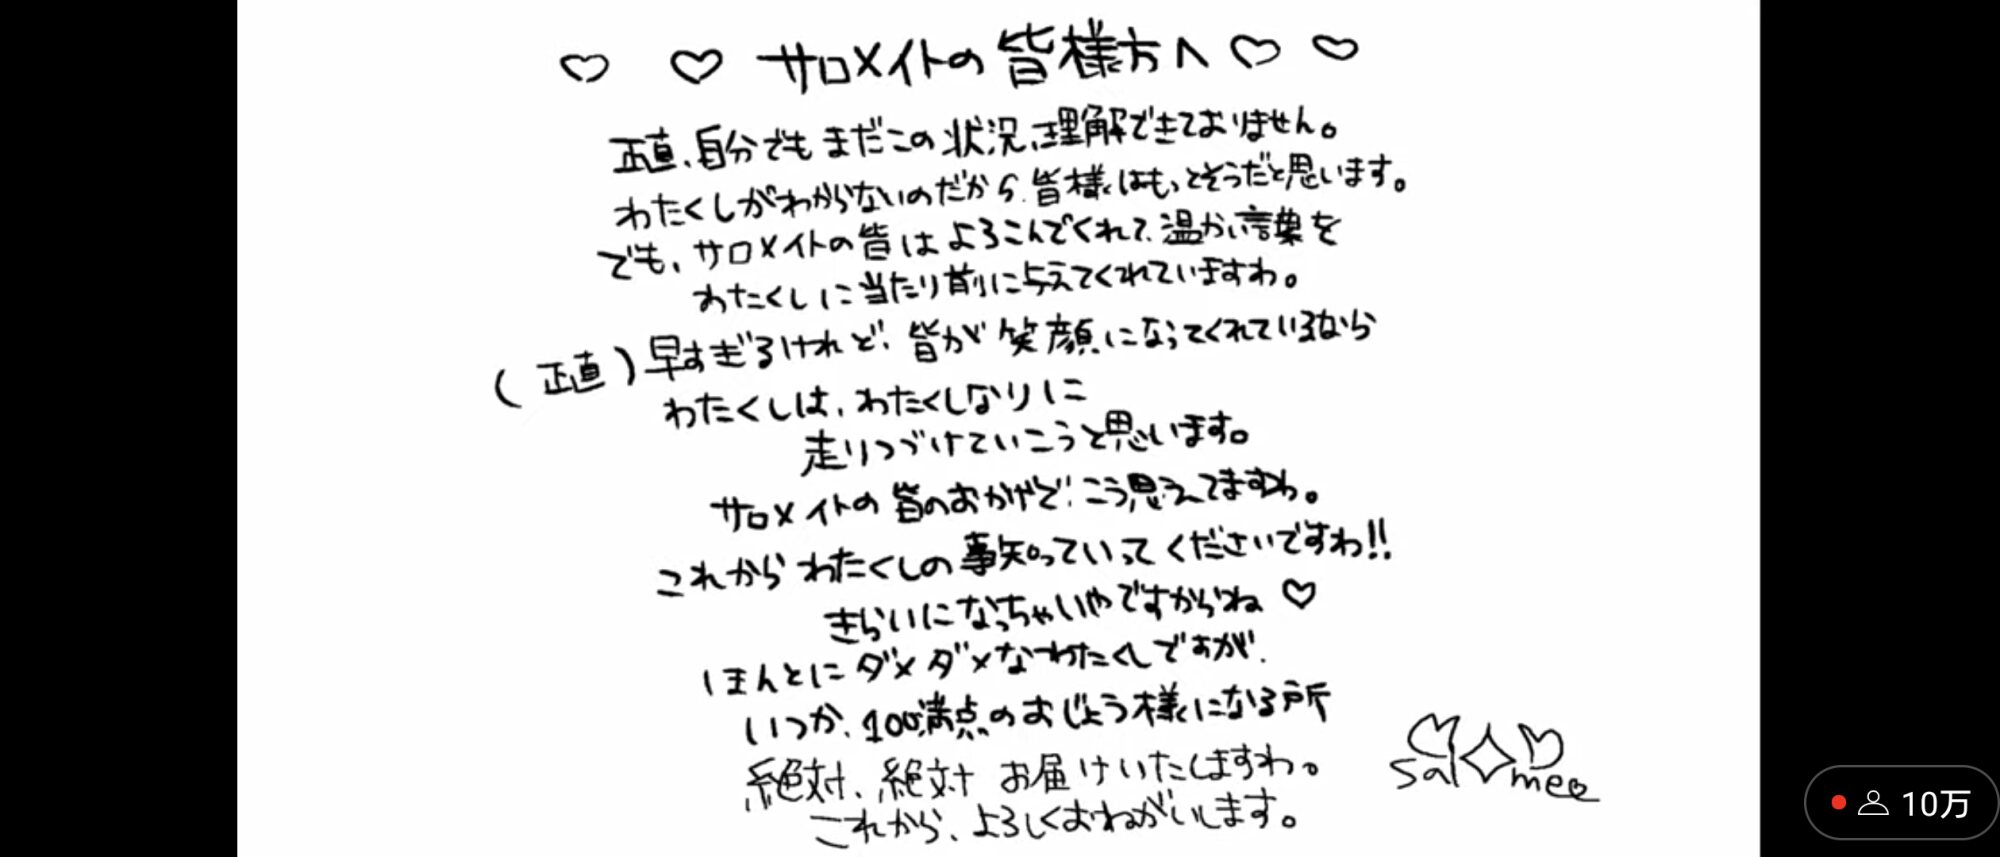 ♡ ♡ サロメイトの皆様方へ ♡ ♡
正直、自分でもまだこの状況、理解できておりません。
わたくしがわからないのだから、皆様はもっとそうだと思います。
でも、サロメイトの皆はよろこんでくれて、温かい言葉を
わたくしに当たり前に与えてくれていますわ。
(正直)早すぎるけれど、皆が笑顔になってくれているなら
わたくしは、わたくしなりに
走りつづけていこうと思います。
サロメイトの皆のおかげで、こう思えてますわ。
これからわたくしの事知っていってくださいですわ!!
きらいになっちゃいやですからね♡
ほんとにダメダメなわたくしですが、
いつか、100満点のおじょう様になる所
絶対、絶対お届けいたしますわ。
これから、よろしくおねがいします。
salomee
10万